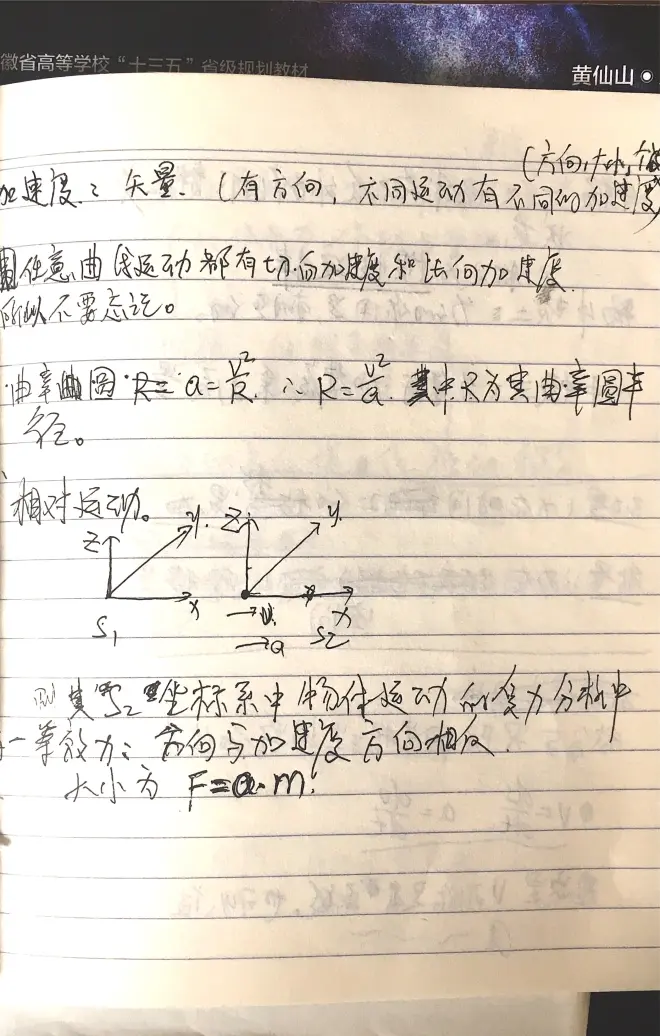 徽省高等学校“十三五”省级规划教材
黄仙山
(方向,大小,
加速度: 矢量. (有方向, 不同运动有不同的加速度)
任意曲线运动都有切向加速度和法向加速度
所以不要忘记。
曲率圆 R= a=V²/R. ∴ R=V²/a. 其中R为其曲率圆半
径。
相对运动。
Z y. Z y.
x x
S₁ → u. S₂
→ a
则其S₂坐标系中物体运动的受力分析中
一等效力: 方向与加速度方向相反.
大小为 F=a·m.